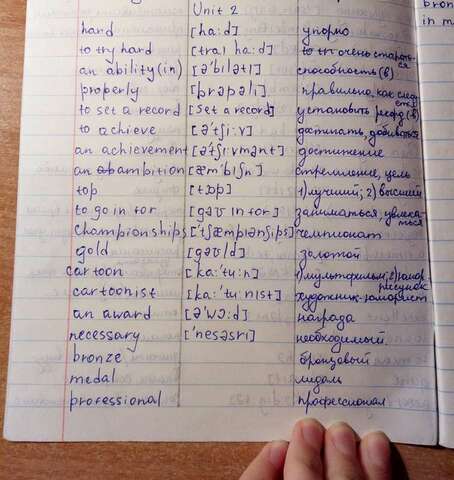 Unit 2
hard [ha:d] упорно
to try hard [traI ha:d] очень стараться
an ability (in) [ə'bɪlətɪ] способность (в)
properly [prɒpəlɪ] правильно, как следует
to set a record [set a record] установить рекорд (в)
to achieve [ə'tʃi:v] достигать, добиваться
an achievement [ə'tʃi:vmənt] достижение
an ambition [æm'bɪʃn] стремление, цель
top [tɒp] 1) лучший; 2) высший
to go in for [gəʊ in for] заниматься, увлекаться
Championships ['tʃæmpɪənʃips] чемпионат
gold [gəʊld] золотой
cartoon [ka:'tu:n] 1) мультфильм; 2) юмор. рисунок
cartoonist [ka:'tu:nɪst] художник-юморист
an award [ə'wɔ:d] награда
necessary ['nesəsrɪ] необходимый.
bronze бронзовый
medal медаль
professional профессионал
bron
in m